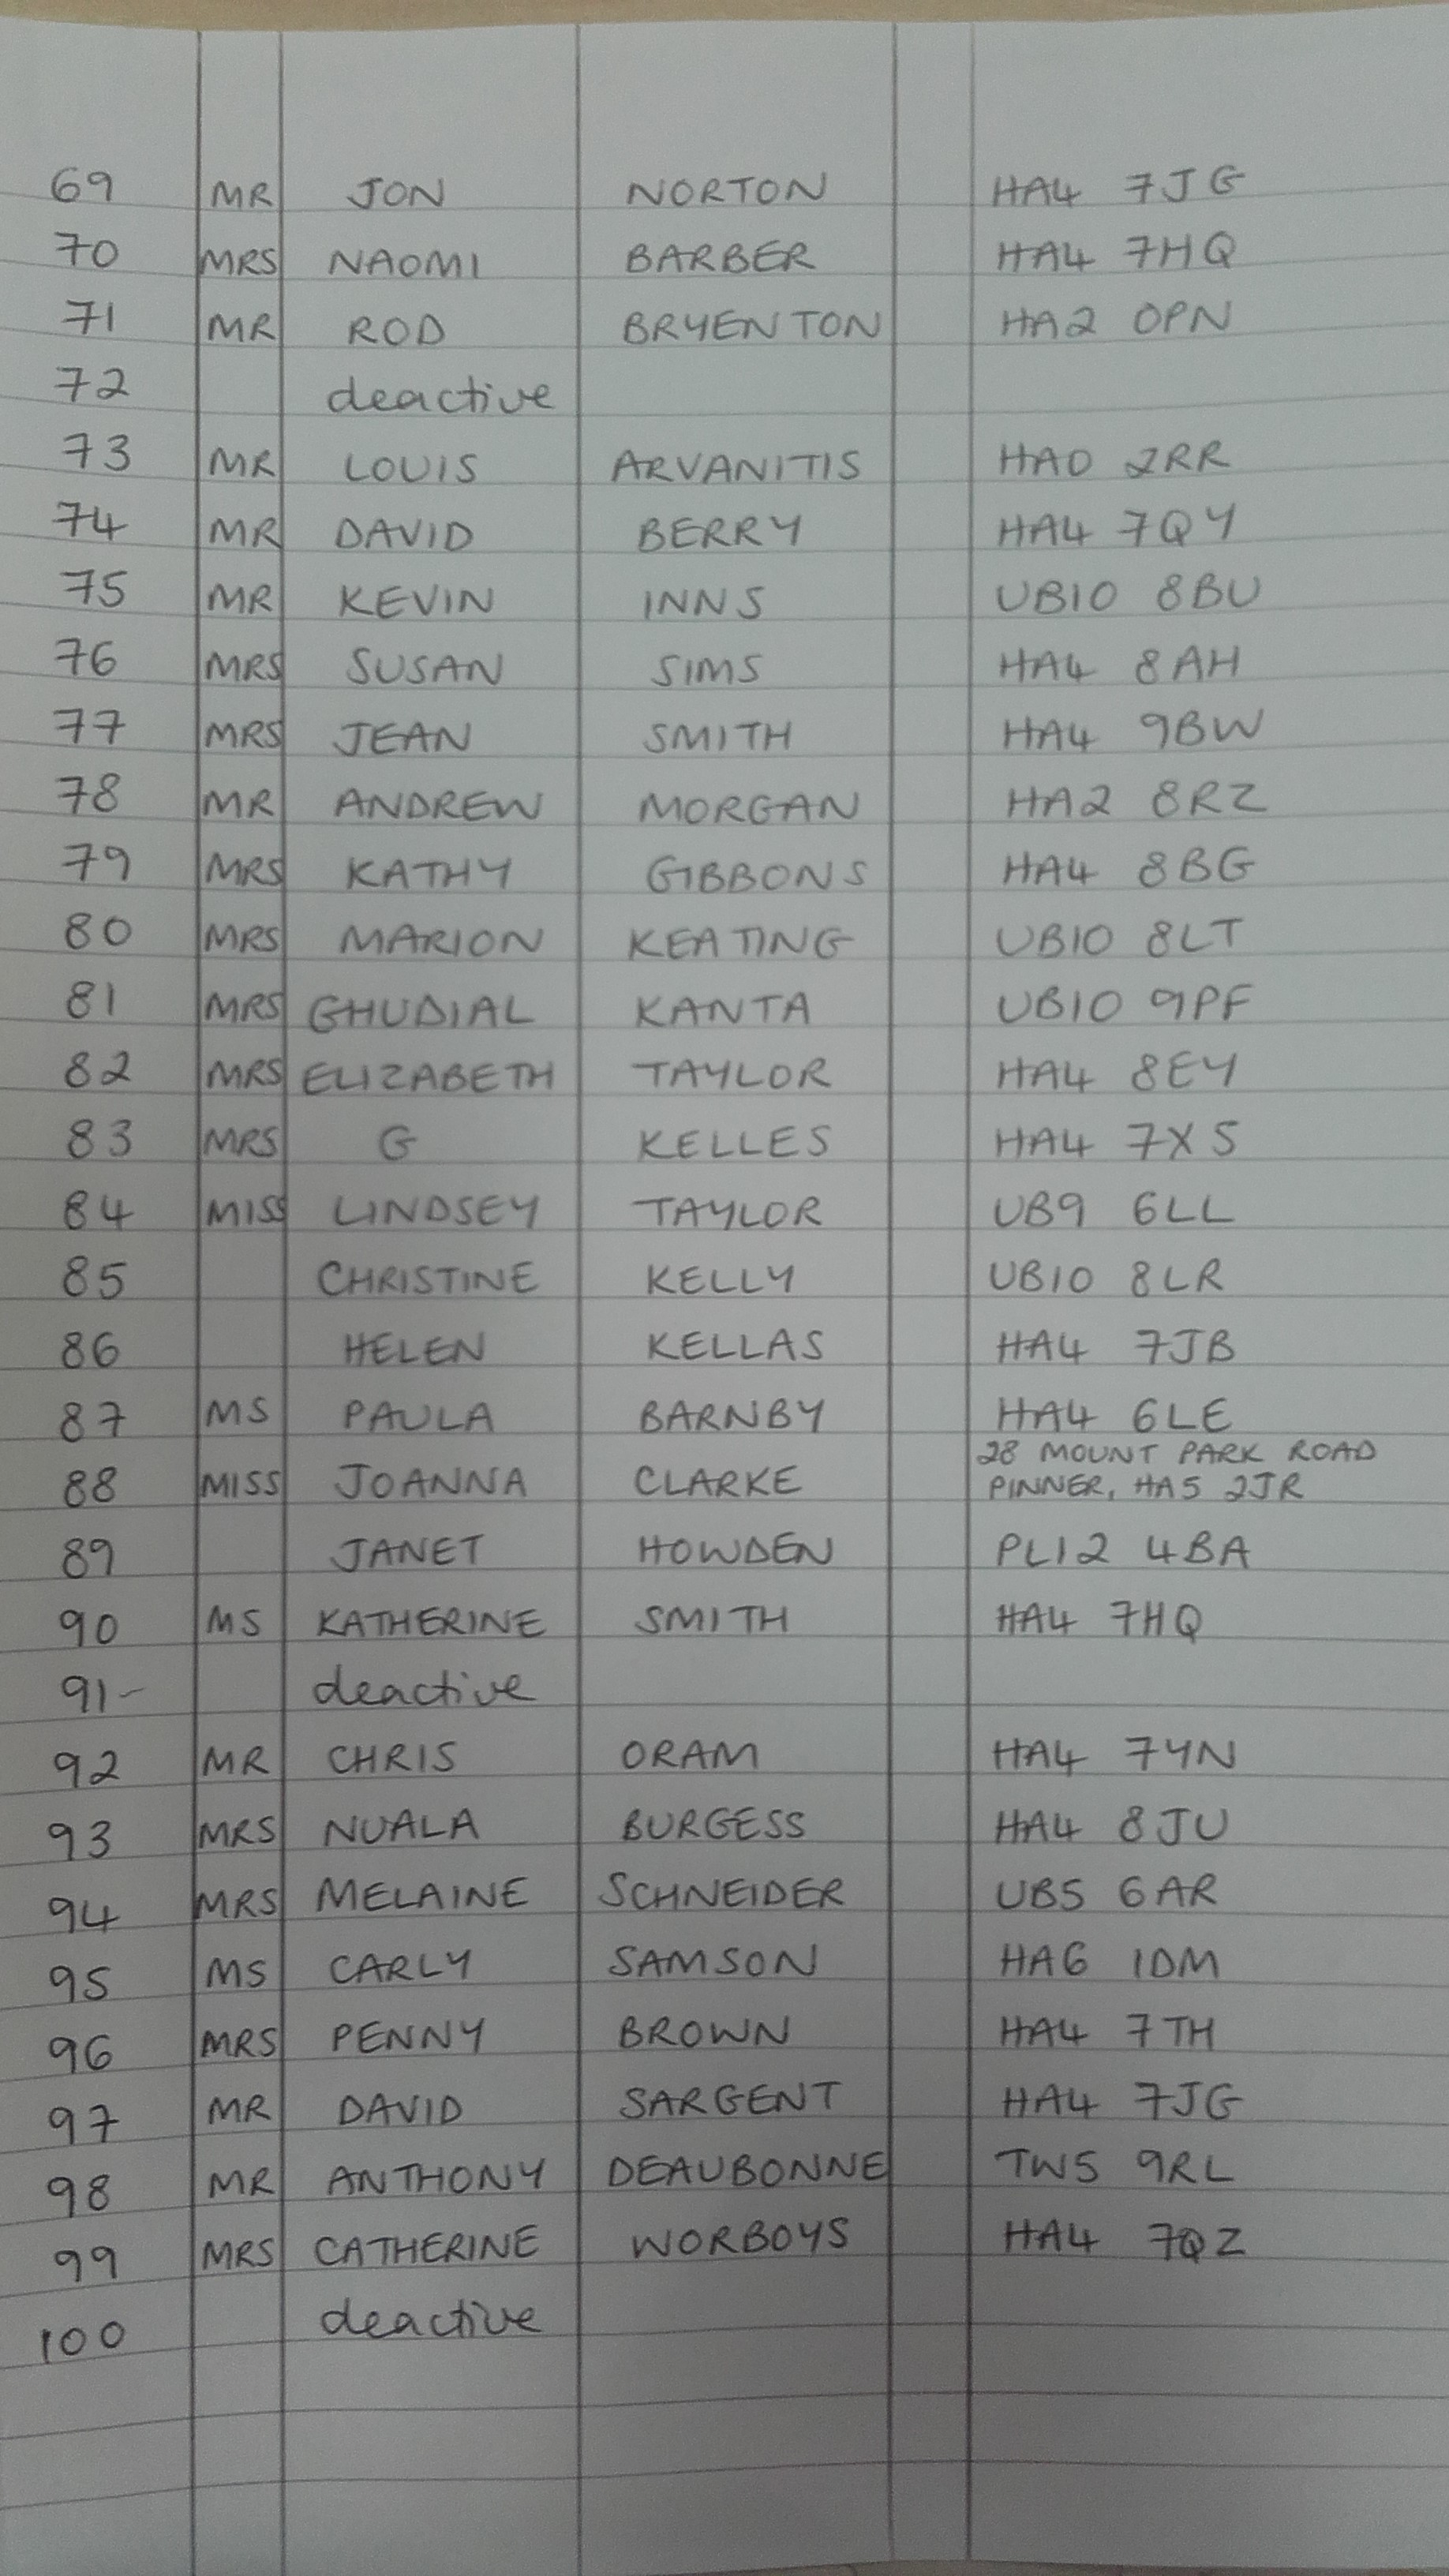 69 MR JON NORTON HA4 7JG
70 MRS NAOMI BARBER HA4 7HQ
71 MR ROD BRYENTON HA2 0PN
72 deactive
73 MR LOUIS ARVANITIS HA0 2RR
74 MR DAVID BERRY HA4 7QY
75 MR KEVIN INNS UB10 8BU
76 MRS SUSAN SIMS HA4 8AH
77 MRS JEAN SMITH HA4 9BW
78 MR ANDREW MORGAN HA2 8RZ
79 MRS KATHY GIBBONS HA4 8BG
80 MRS MARION KEATING UB10 8LT
81 MRS GHUDIAL KANTA UB10 9PF
82 MRS ELIZABETH TAYLOR HA4 8EY
83 MRS G KELLES HA4 7XS
84 MISS LINDSEY TAYLOR UB9 6LL
85 CHRISTINE KELLY UB10 8LR
86 HELEN KELLAS HA4 7JB
87 MS PAULA BARNBY HA4 6LE
28 MOUNT PARK ROAD
88 MISS JOANNA CLARKE PINNER, HA5 2JR
89 JANET HOWDEN PL12 4BA
90 MS KATHERINE SMITH HA4 7HQ
91- deactive
92 MR CHRIS ORAM HA4 7YN
93 MRS NUALA BURGESS HA4 8JU
94 MRS MELAINE SCHNEIDER UB5 6AR
95 MS CARLY SAMSON HA6 1DM
96 MRS PENNY BROWN HA4 7TH
97 MR DAVID SARGENT HA4 7JG
98 MR ANTHONY DEAUBONNE TW5 9RL
99 MRS CATHERINE WORBOYS HA4 7QZ
100 deactive